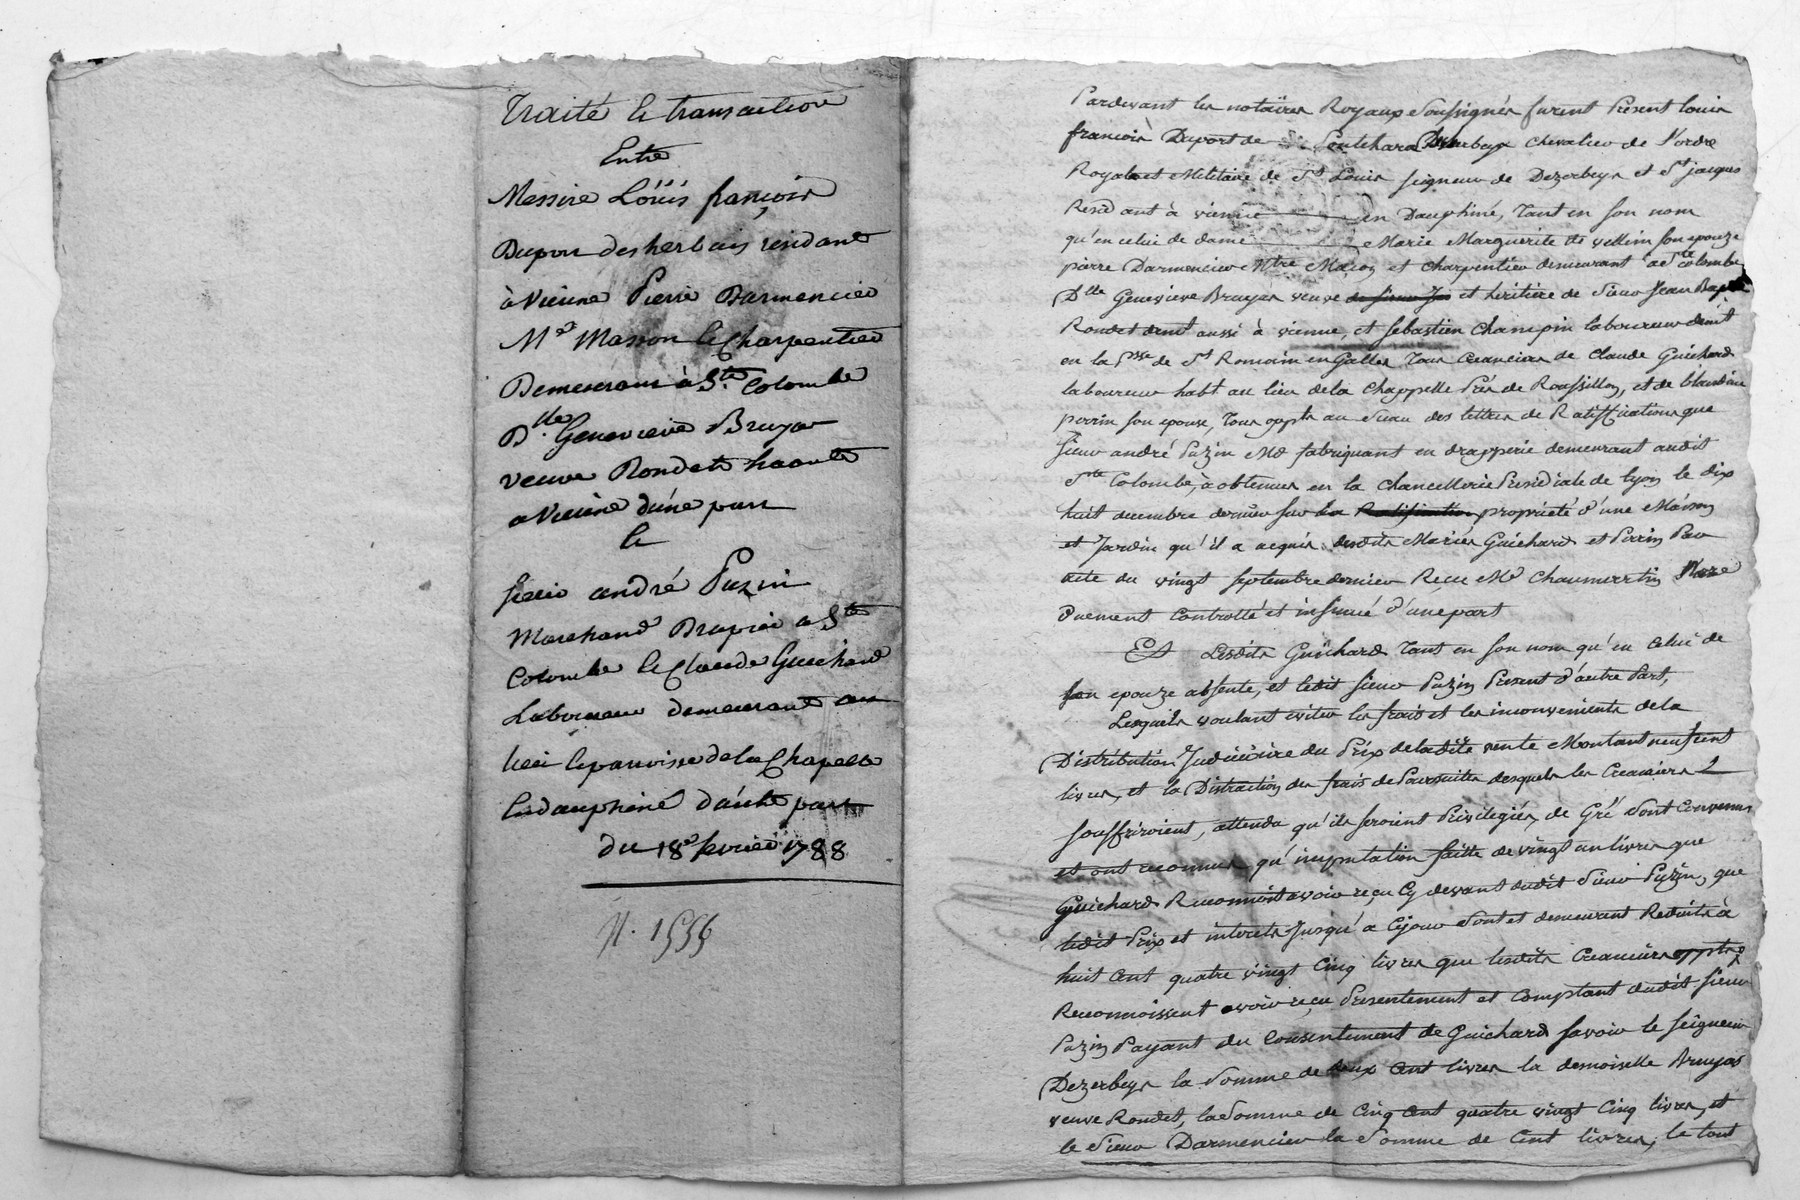 Traité & transaction
Entre
Messire Löüis françois
Dupon desherbais residant
à Vienne Pierre Darmencier
Mº Masson & Charpentier
Demeurans à Ste Colombe
Dlle Genevieve Bruyas
veuve Rondet
a Vienne d'une part
&
sieur andré Puzin
Marchand Drapier a Ste
Colombe & Claude Guichard
Laboureur demeurant au
lieu & paroisse de la Chapelle
En dauphiné d'autre part
du 18e fevrier 1788
N. 1556
Pardevant les notaires Royaux Soussignés furent Present louis
francois Duport de Pontcharra Chevalier de l'ordre
Royal et Militaire de St Louis seigneur de Dezerbeys et St jacques
Resid ant à vienne en Dauphiné, Tant en son nom
qu'en celui de dame Marie Marguerite de vellein son epouze
pierre Darmencier Mtre Maçon et charpentier demeurant à Ste colombe
Dlle Genevieve Bruyas veuve et héritiere de Sieur Jean Bapte
Rondet demt aussi à vienne, et sebastien Champin laboureur demt
en la Psse de St Romain en Galles Tous Creanciers de Claude Guichard
laboureur habt au lieu de la Chappelle Près de Roussillon, et de Claudine
perrin son epouse, Tous oppts au Sceau des lettres de Ratiffications que
sieur andré Puzin Md fabriquant en drapperie demeurant audit
Ste Colombe, à obtenues en la Chancellerie Presidiale de Lyon le dix
huit decembre dernier sur la Ratification propriété d'une Maison
et Jardin qu'il a acquis desdits Mariés Guichard et Perrin Par
acte du vingt septembre dernier Reçu Me Chaumartin Nre
Duement Controllé et insinué d'une part
Et Lesdits Guichard Tant en son nom qu'en celui de
son epouze absente, et ledit sieur Puzin Present d'autre Part,
Lesquels voulant eviter les frais et les inconvenients de la
Distribution Judiciaire du Prix de ladite vente Montant neuf cent
livres, et la Distraction des frais de Poursuites desquels les Creanciers
souffriroient, attendu qu'ils seroient Privilegiés, de Gré sont Convenus
et ont reconnus qu'imputation faitte de vingt un livres que
Guichard Reconnoit avoir reçu Cy devant dudit Sieur Puzin, que
ledit Prix et interets Jusqu'à Cejour sont et demeurent Reduits à
huit Cent quatre vingt Cinq livres que lesdits Creanciers oppts
Reconnoissent avoir reçu Presentement et Comptant dudit sieur
Puzin Payant du Consentement de Guichard savoir le seigneur
Dezerbeys la Somme de deux Cent livres la demoiselle Bruyas
veuve Rondet, la Somme de Cinq Cent quatre vingt Cinq livres, et
le Sieur Darmencier la Somme de Cent livres, le tout